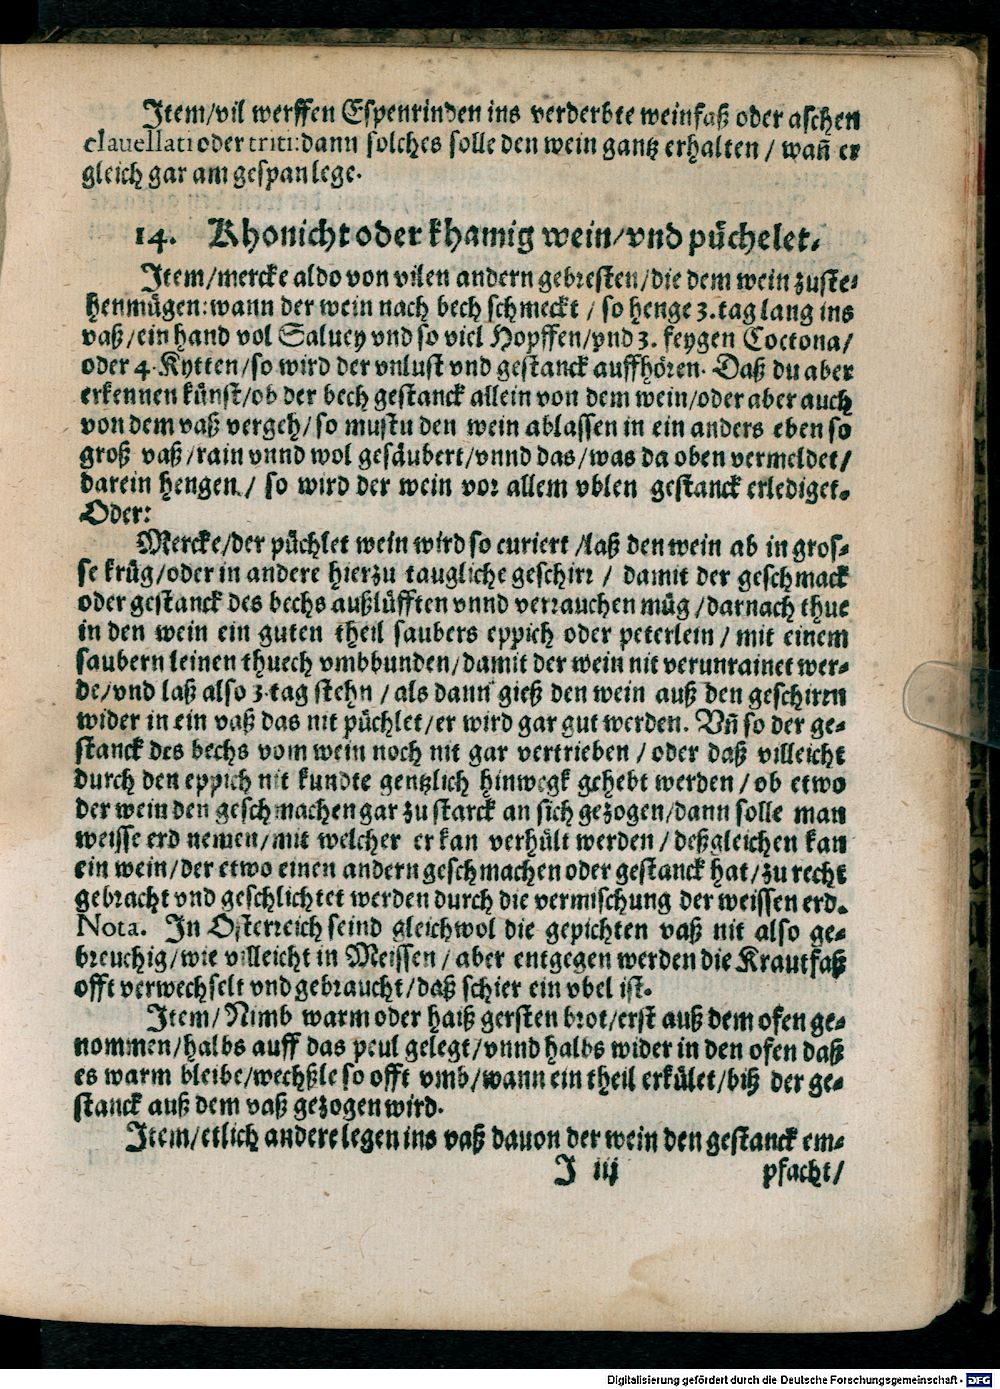 Item/vil werffen Espenrinden ins verderbte weinfaß oder aschen
clauellati oder triti: dann solches solle den wein gantz erhalten / wañ er
gleich gar am gespan lege.
14. Khonicht oder khamig wein/vnd püchelet.
Item/mercke aldo von vilen andern gebresten/die dem wein zuste-
henmügen: wann der wein nach bech schmeckt / so henge 3. tag lang ins
vaß/ein hand vol Saluey vnd so viel Hopffen/vnd 3. feygen Coctona/
oder 4. Kytten/so wird der vnlust vnd gestanck auffhören. Daß du aber
erkennen künst/ob der bech gestanck allein von dem wein/oder aber auch
von dem vaß vergeh/so mustu den wein ablassen in ein anders eben so
groß vaß/rain vnnd wol gesäubert/vnnd das/was da oben vermeldet/
darein hengen / so wird der wein vor allem vblen gestanck erlediget.
Oder:
Mercke/der püchlet wein wird so curiert/laß den wein ab in gros-
se krüg/oder in andere hierzu taugliche geschirr / damit der geschmack
oder gestanck des bechs außlüfften vnnd verrauchen müg/darnach thue
in den wein ein guten theil saubers eppich oder peterlein/mit einem
saubern leinen thuech vmbbunden/damit der wein nit verunrainet wer-
de/vnd laß also 3. tag stehn / als dann gieß den wein auß den geschirrn
wider in ein vaß das nit püchlet/er wird gar gut werden. Vñ so der ge-
stanck des bechs vom wein noch nit gar vertrieben / oder daß villeicht
durch den eppich nit kundte gentzlich hinwegk gehebt werden / ob etwo
der wein den geschmachen gar zu starck an sich gezogen/dann solle man
weisse erd nemen/mit welcher er kan verhült werden / deßgleichen kan
ein wein/der etwo einen andern geschmachen oder gestanck hat/zu recht
gebracht vnd geschlichtet werden durch die vermischung der weissen erd.
Nota. In Osterreich seind gleichwol die gepichten vaß nit also ge-
breuchig/wie villeicht in Meissen / aber entgegen werden die Krautfaß
offt verwechselt vnd gebraucht/daß schier ein vbel ist.
Item/Nimb warm oder haiß gersten brot/erst auß dem ofen ge-
nommen/halbs auff das peul gelegt/vnnd halbs wider in den ofen daß
es warm bleibe/wechßle so offt vmb/wann ein theil erkület/biß der ge-
stanck auß dem vaß gezogen wird.
Item/etlich andere legen ins vaß dauon der wein den gestanck em-
J iij pfacht/
Digitalisierung gefördert durch die Deutsche Forschungsgemeinschaft - DFG